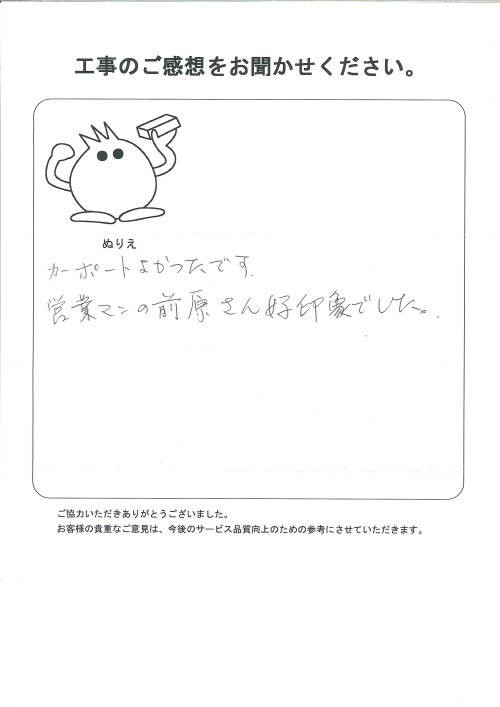 工事のご感想をお聞かせください。
ぬりえ
カーポートよかったです.
営業マンの前原さん好印象でした。
ご協力いただきありがとうございました。
お客様の貴重なご意見は、今後のサービス品質向上のための参考にさせていただきます。